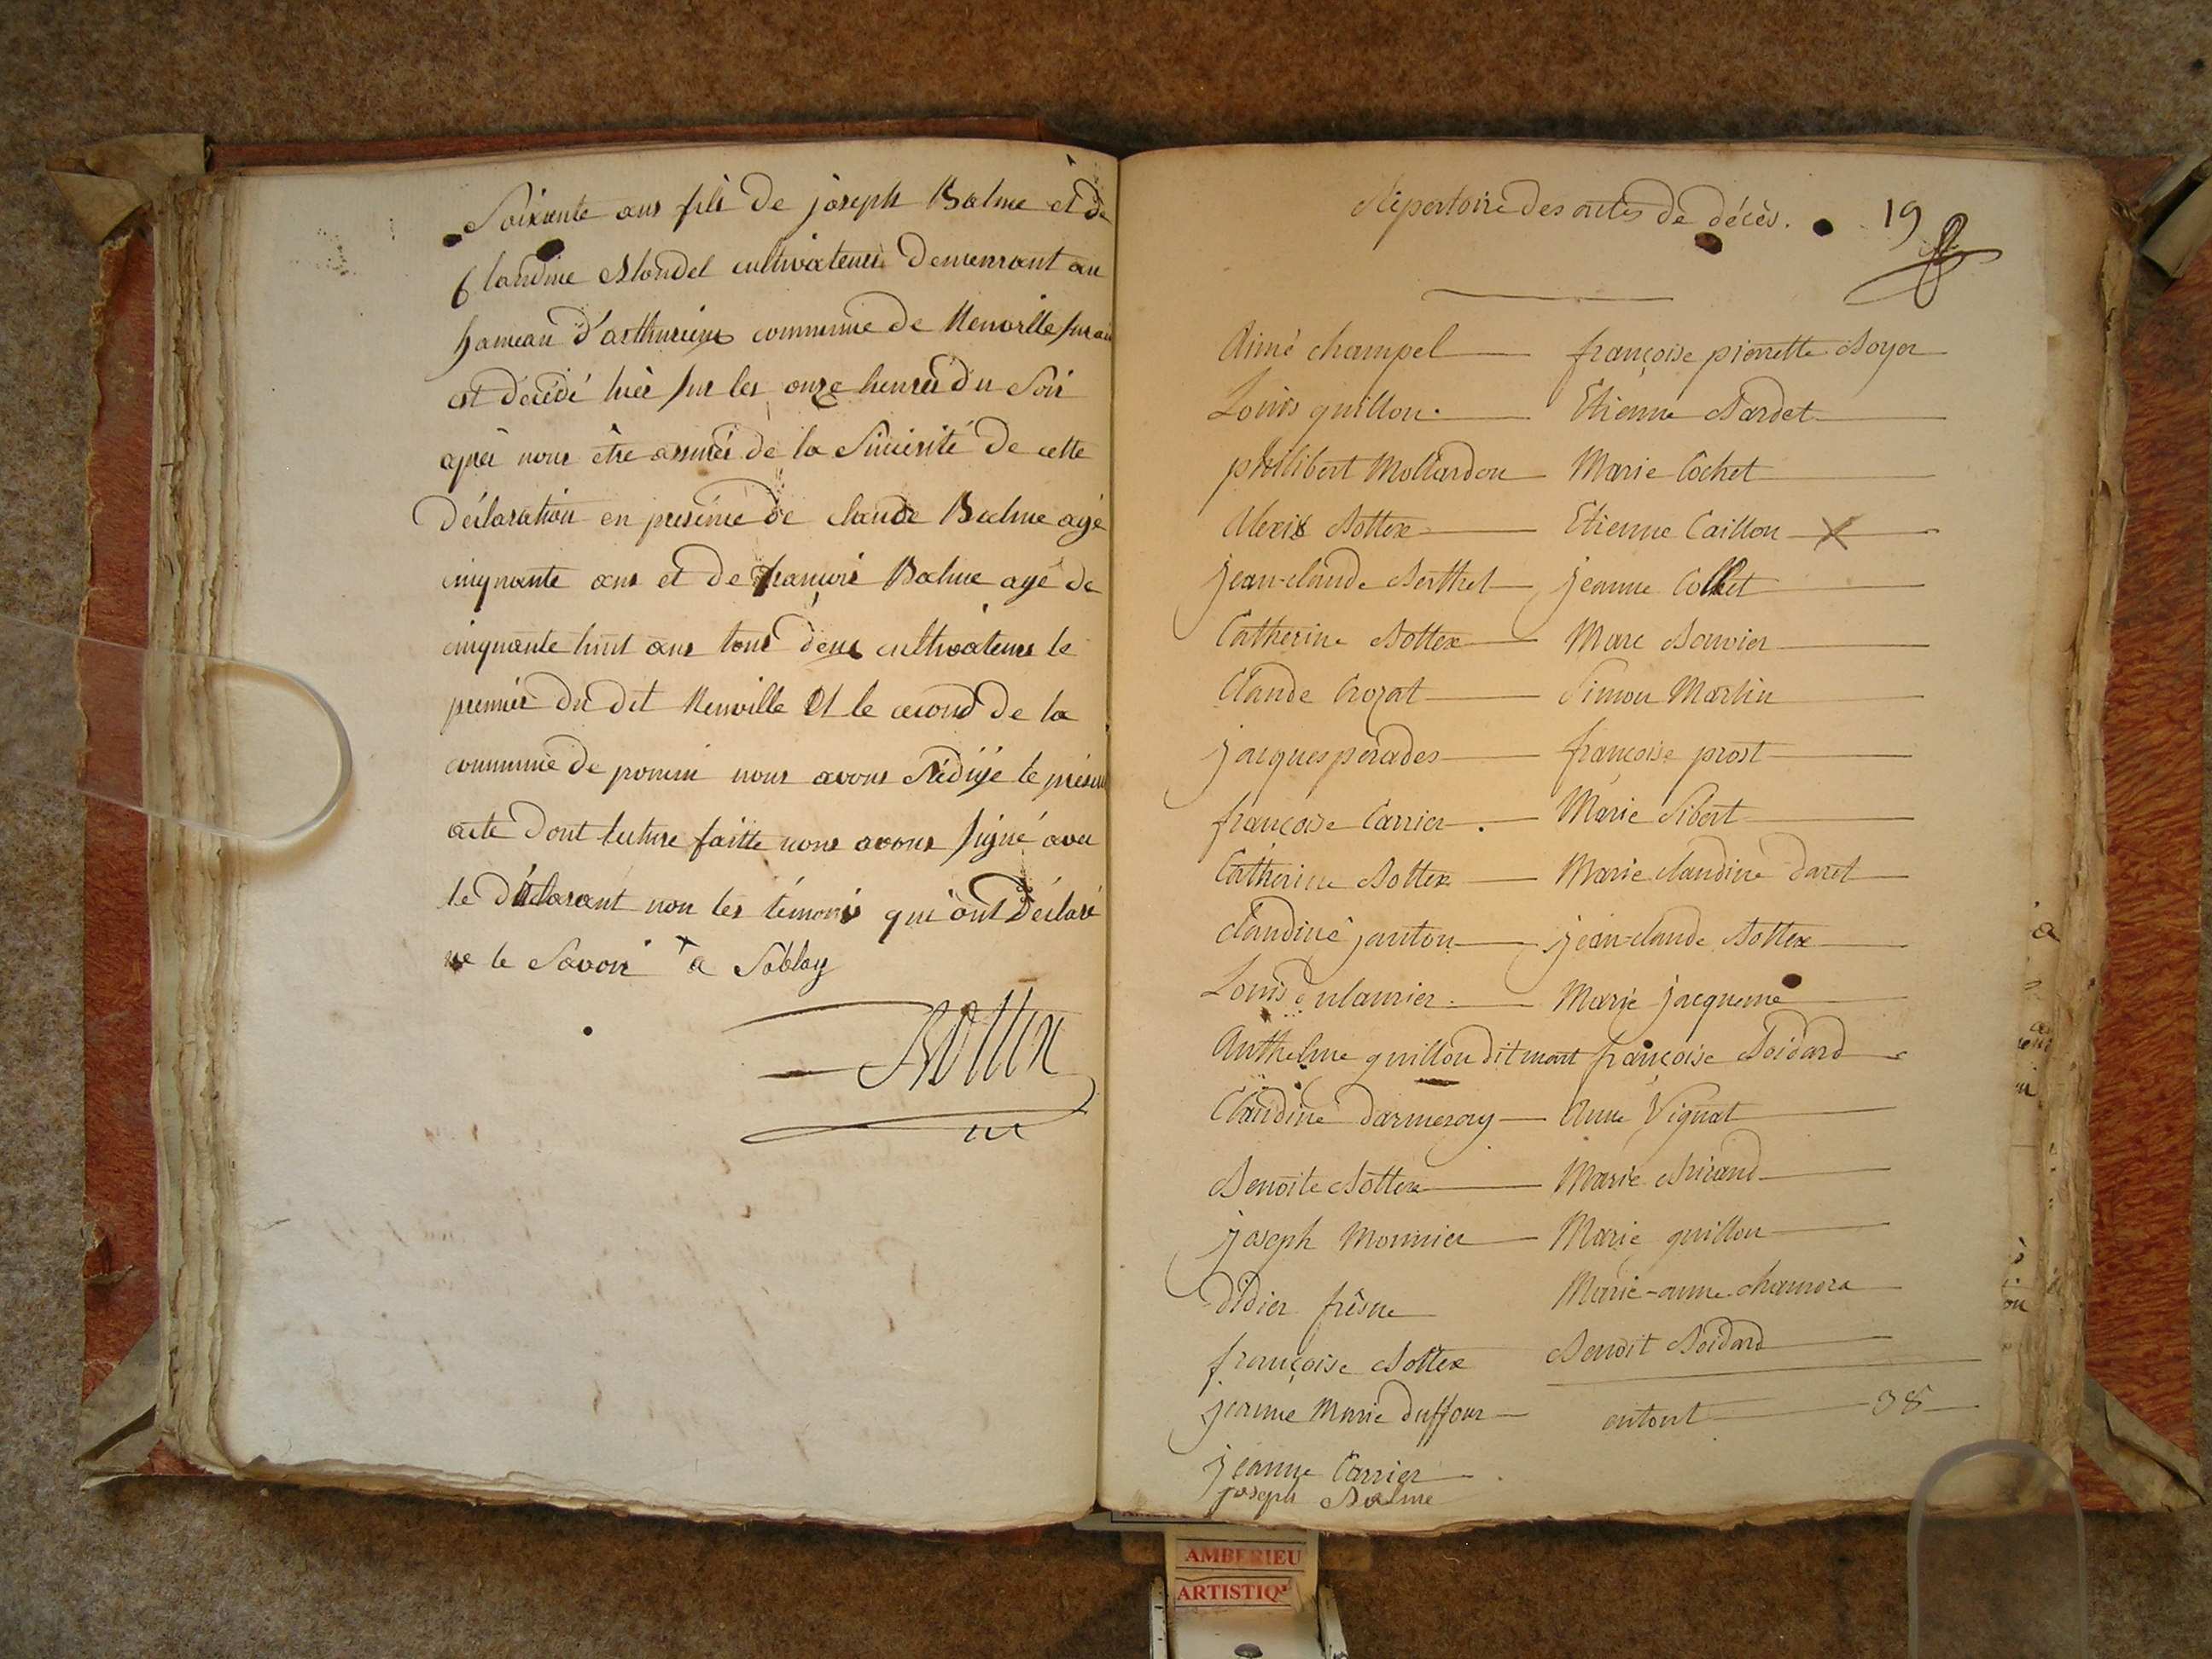 Soixante ans fils de joseph Balme et de
Claudine Blondel cultivateur demeurant au
hameau d'arthurieux commune de Neuville sur ain
est décédé hier sur les onze heures du Soir
après nous être assurés de la Sincérité de cette
déclaration en présence de claude Balme agé
cinquante ans et de françois Balme agé de
cinquante huit ans tous deux cultivateurs le
premier du dit Neuville Et le second de la
commune de poncin nous avons Rédigé le présent
acte dont lecture faitte nous avons signé avec
le déclarant non les témoins qui ont déclaré
ne le Savoir a
Bottex
Répertoire des actes de décès. 19
Aimé champel françoise pierrette Boyer
Louis guillon. Etienne Bardet
philibert Mollardon Marie Cochet
Alexis Bottex Etienne Caillon X
jean-claude Berthet jeanne Collet
Catherine Bottex Marc Bouvier
Claude Crozat Simon Martin
jacques perades françoise prost
françoise Carrier. Marie Sibert
Catherine Bottex Marie claudine daret
claudine janton jean-claude Bottex
Louis dulaurier Marie jacqueme
Anthelme guillon dit mort françoise Boidard
Claudine darmeray Anne Vignat
Benoite Bottex Marie Burand
joseph Monnier Marie guillon
didier frêsne Marie-anne chamera
françoise Bottex Benoit Boidard
jeanne Marie duffour entout 38
jeanne Carrier
joseph Balme
AMBERIEU
ARTISTIQ